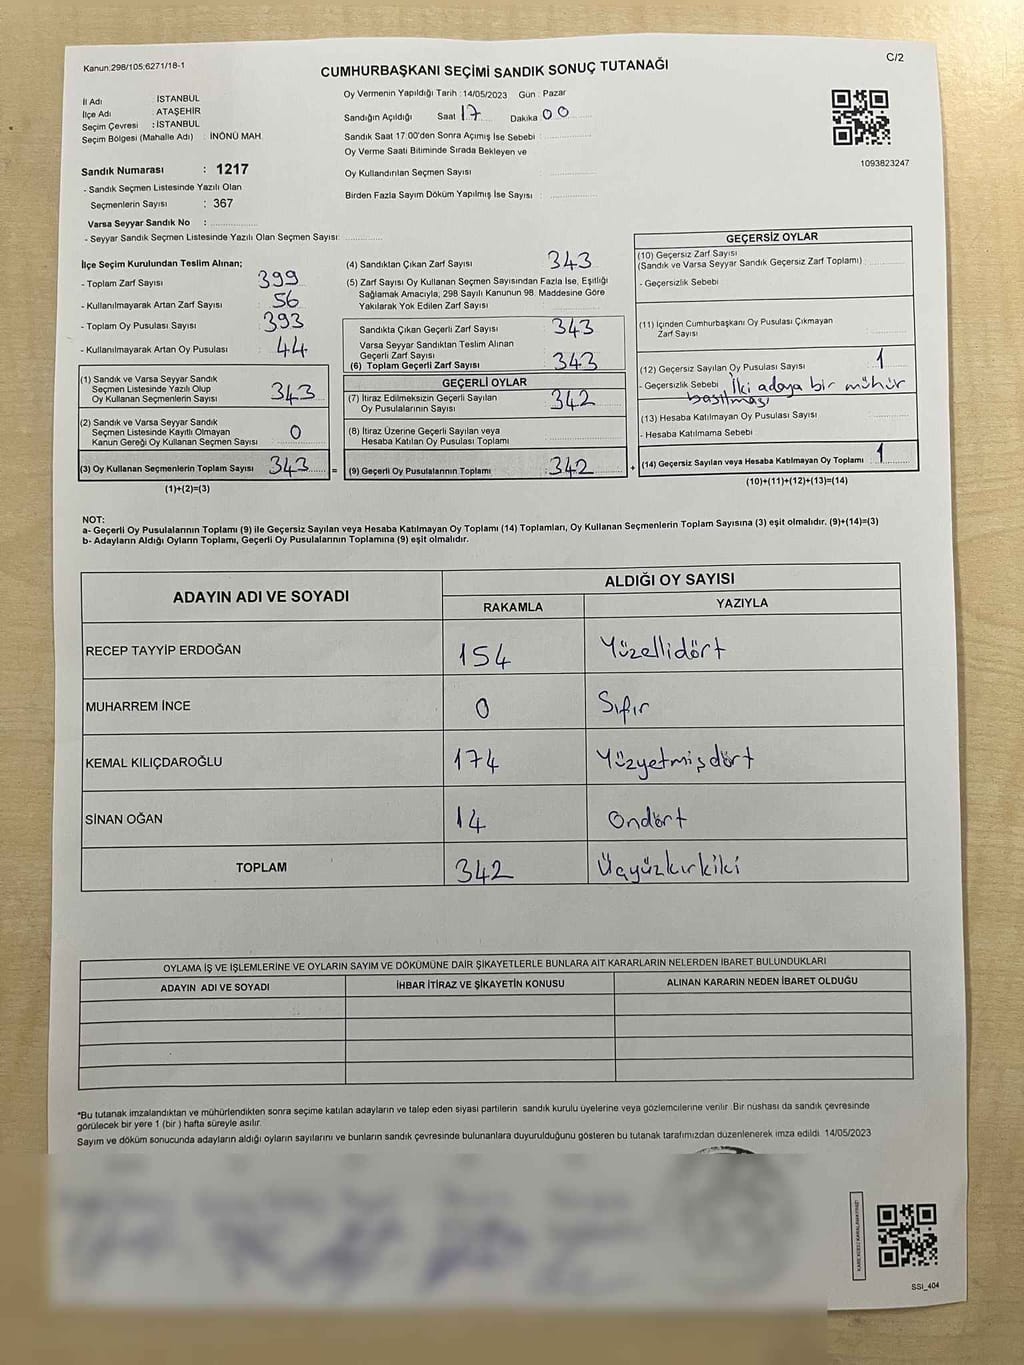 Kanun:298/105;6271/18-1
C/2
CUMHURBAŞKANI SEÇİMİ SANDIK SONUÇ TUTANAĞI
İl Adı : İSTANBUL
İlçe Adı : ATAŞEHİR
Seçim Çevresi : İSTANBUL
Seçim Bölgesi (Mahalle Adı) : İNÖNÜ MAH.
Sandık Numarası : 1217
- Sandık Seçmen Listesinde Yazılı Olan
Seçmenlerin Sayısı : 367
Varsa Seyyar Sandık No :
- Seyyar Sandık Seçmen Listesinde Yazılı Olan Seçmen Sayısı:
Oy Vermenin Yapıldığı Tarih : 14/05/2023 Gün : Pazar
Sandığın Açıldığı Saat 17 Dakika 00
Sandık Saat 17:00'den Sonra Açımış İse Sebebi :
Oy Verme Saati Bitiminde Sırada Bekleyen ve
Oy Kullandırılan Seçmen Sayısı :
Birden Fazla Sayım Döküm Yapılmış İse Sayısı :
1093823247
İlçe Seçim Kurulundan Teslim Alınan;
- Toplam Zarf Sayısı : 399
- Kullanılmayarak Artan Zarf Sayısı : 56
- Toplam Oy Pusulası Sayısı : 393
- Kullanılmayarak Artan Oy Pusulası : 44
(1) Sandık ve Varsa Seyyar Sandık
Seçmen Listesinde Yazılı Olup
Oy Kullanan Seçmenlerin Sayısı : 343
(2) Sandık ve Varsa Seyyar Sandık
Seçmen Listesinde Kayıtlı Olmayan
Kanun Gereği Oy Kullanan Seçmen Sayısı : 0
(3) Oy Kullanan Seçmenlerin Toplam Sayısı : 343 =
(1)+(2)=(3)
(4) Sandıktan Çıkan Zarf Sayısı : 343
(5) Zarf Sayısı Oy Kullanan Seçmen Sayısından Fazla İse, Eşitliği
Sağlamak Amacıyla, 298 Sayılı Kanunun 98. Maddesine Göre
Yakılarak Yok Edilen Zarf Sayısı :
Sandıkta Çıkan Geçerli Zarf Sayısı : 343
Varsa Seyyar Sandıktan Teslim Alınan
Geçerli Zarf Sayısı
(6) Toplam Geçerli Zarf Sayısı : 343
GEÇERLİ OYLAR
(7) İtiraz Edilmeksizin Geçerli Sayılan
Oy Pusulalarının Sayısı : 342
(8) İtiraz Üzerine Geçerli Sayılan veya
Hesaba Katılan Oy Pusulası Toplamı :
(9) Geçerli Oy Pusulalarının Toplamı : 342 +
GEÇERSİZ OYLAR
(10) Geçersiz Zarf Sayısı
(Sandık ve Varsa Seyyar Sandık Geçersiz Zarf Toplamı) :
- Geçersizlik Sebebi
(11) İçinden Cumhurbaşkanı Oy Pusulası Çıkmayan
Zarf Sayısı :
(12) Geçersiz Sayılan Oy Pusulası Sayısı : 1
- Geçersizlik Sebebi İki adaya bir mühür
basılması
(13) Hesaba Katılmayan Oy Pusulası Sayısı :
- Hesaba Katılmama Sebebi
(14) Geçersiz Sayılan veya Hesaba Katılmayan Oy Toplamı : 1
(10)+(11)+(12)+(13)=(14)
NOT:
a- Geçerli Oy Pusulalarının Toplamı (9) ile Geçersiz Sayılan veya Hesaba Katılmayan Oy Toplamı (14) Toplamları, Oy Kullanan Seçmenlerin Toplam Sayısına (3) eşit olmalıdır. (9)+(14)=(3)
b- Adayların Aldığı Oyların Toplamı, Geçerli Oy Pusulalarının Toplamına (9) eşit olmalıdır.
ADAYIN ADI VE SOYADI
ALDIĞI OY SAYISI
RAKAMLA YAZIYLA
RECEP TAYYİP ERDOĞAN 154 Yüzellidört
MUHARREM İNCE 0 Sıfır
KEMAL KILIÇDAROĞLU 174 Yüzyetmişdört
SİNAN OĞAN 14 Ondört
TOPLAM 342 Üçyüzkırkiki
OYLAMA İŞ VE İŞLEMLERİNE VE OYLARIN SAYIM VE DÖKÜMÜNE DAİR ŞİKAYETLERLE BUNLARA AİT KARARLARIN NELERDEN İBARET BULUNDUKLARI
ADAYIN ADI VE SOYADI İHBAR İTİRAZ VE ŞİKAYETİN KONUSU ALINAN KARARIN NEDEN İBARET OLDUĞU
*Bu tutanak imzalandıktan ve mühürlendikten sonra seçime katılan adayların ve talep eden siyasi partilerin sandık kurulu üyelerine veya gözlemcilerine verilir. Bir nüshası da sandık çevresinde
görülecek bir yere 1 (bir ) hafta süreyle asılır.
Sayım ve döküm sonucunda adayların aldığı oyların sayılarını ve bunların sandık çevresinde bulunanlara duyurulduğunu gösteren bu tutanak tarafımızdan düzenlenerek imza edildi. 14/05/2023
SSI_404